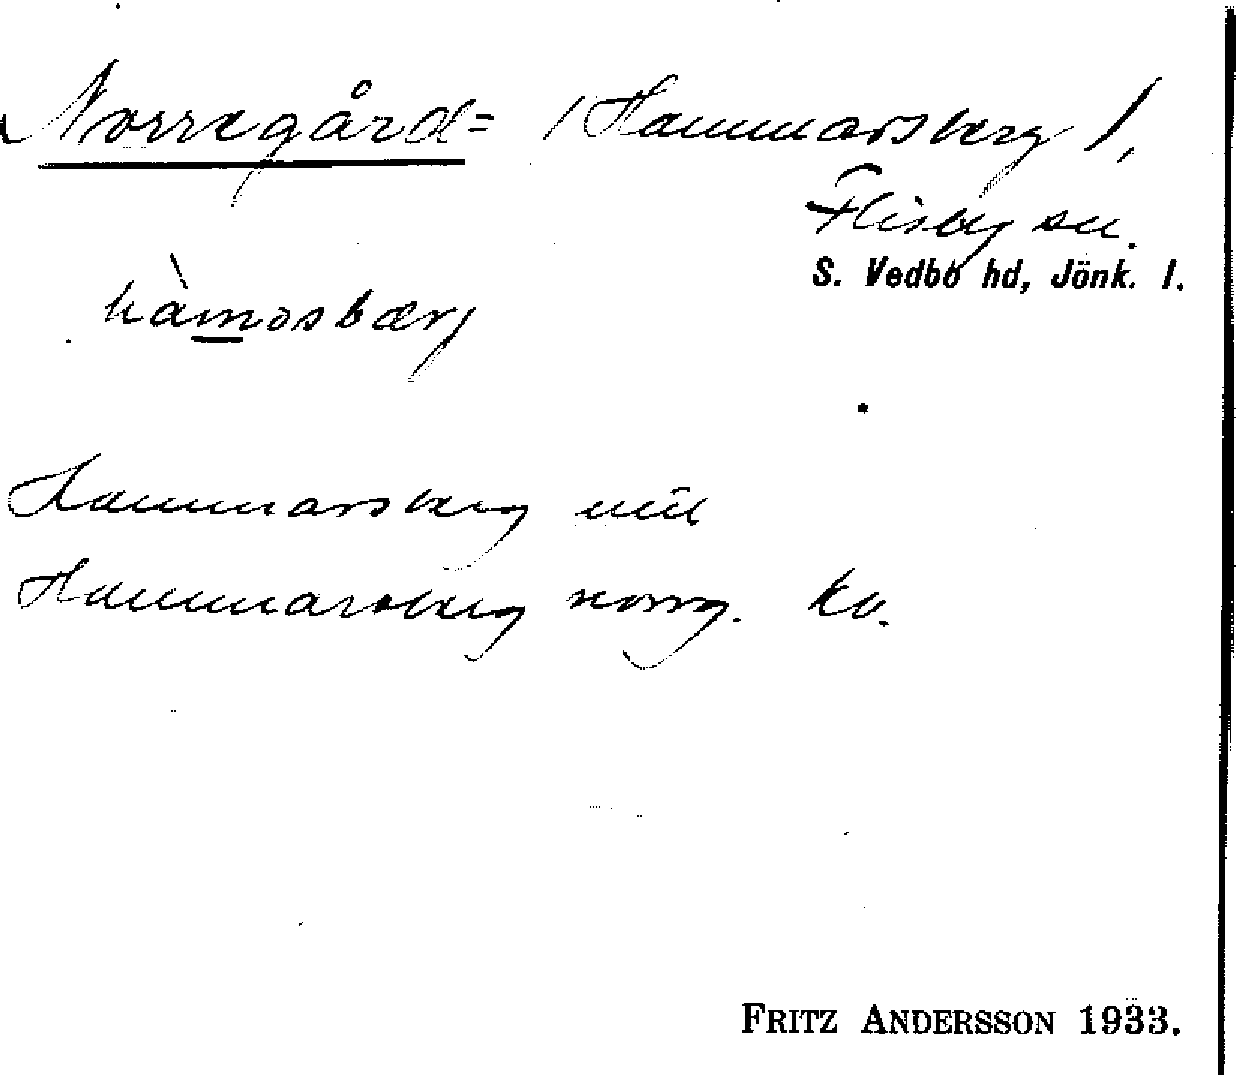 Norregård= /Hammarsberg/,
Flisby sn.
S. Vedbo hd, Jönk. l.
hàmosbærj
Hammarsberg
Hammarsberg norrg. ko.
FRITZ ANDERSSON 1933.